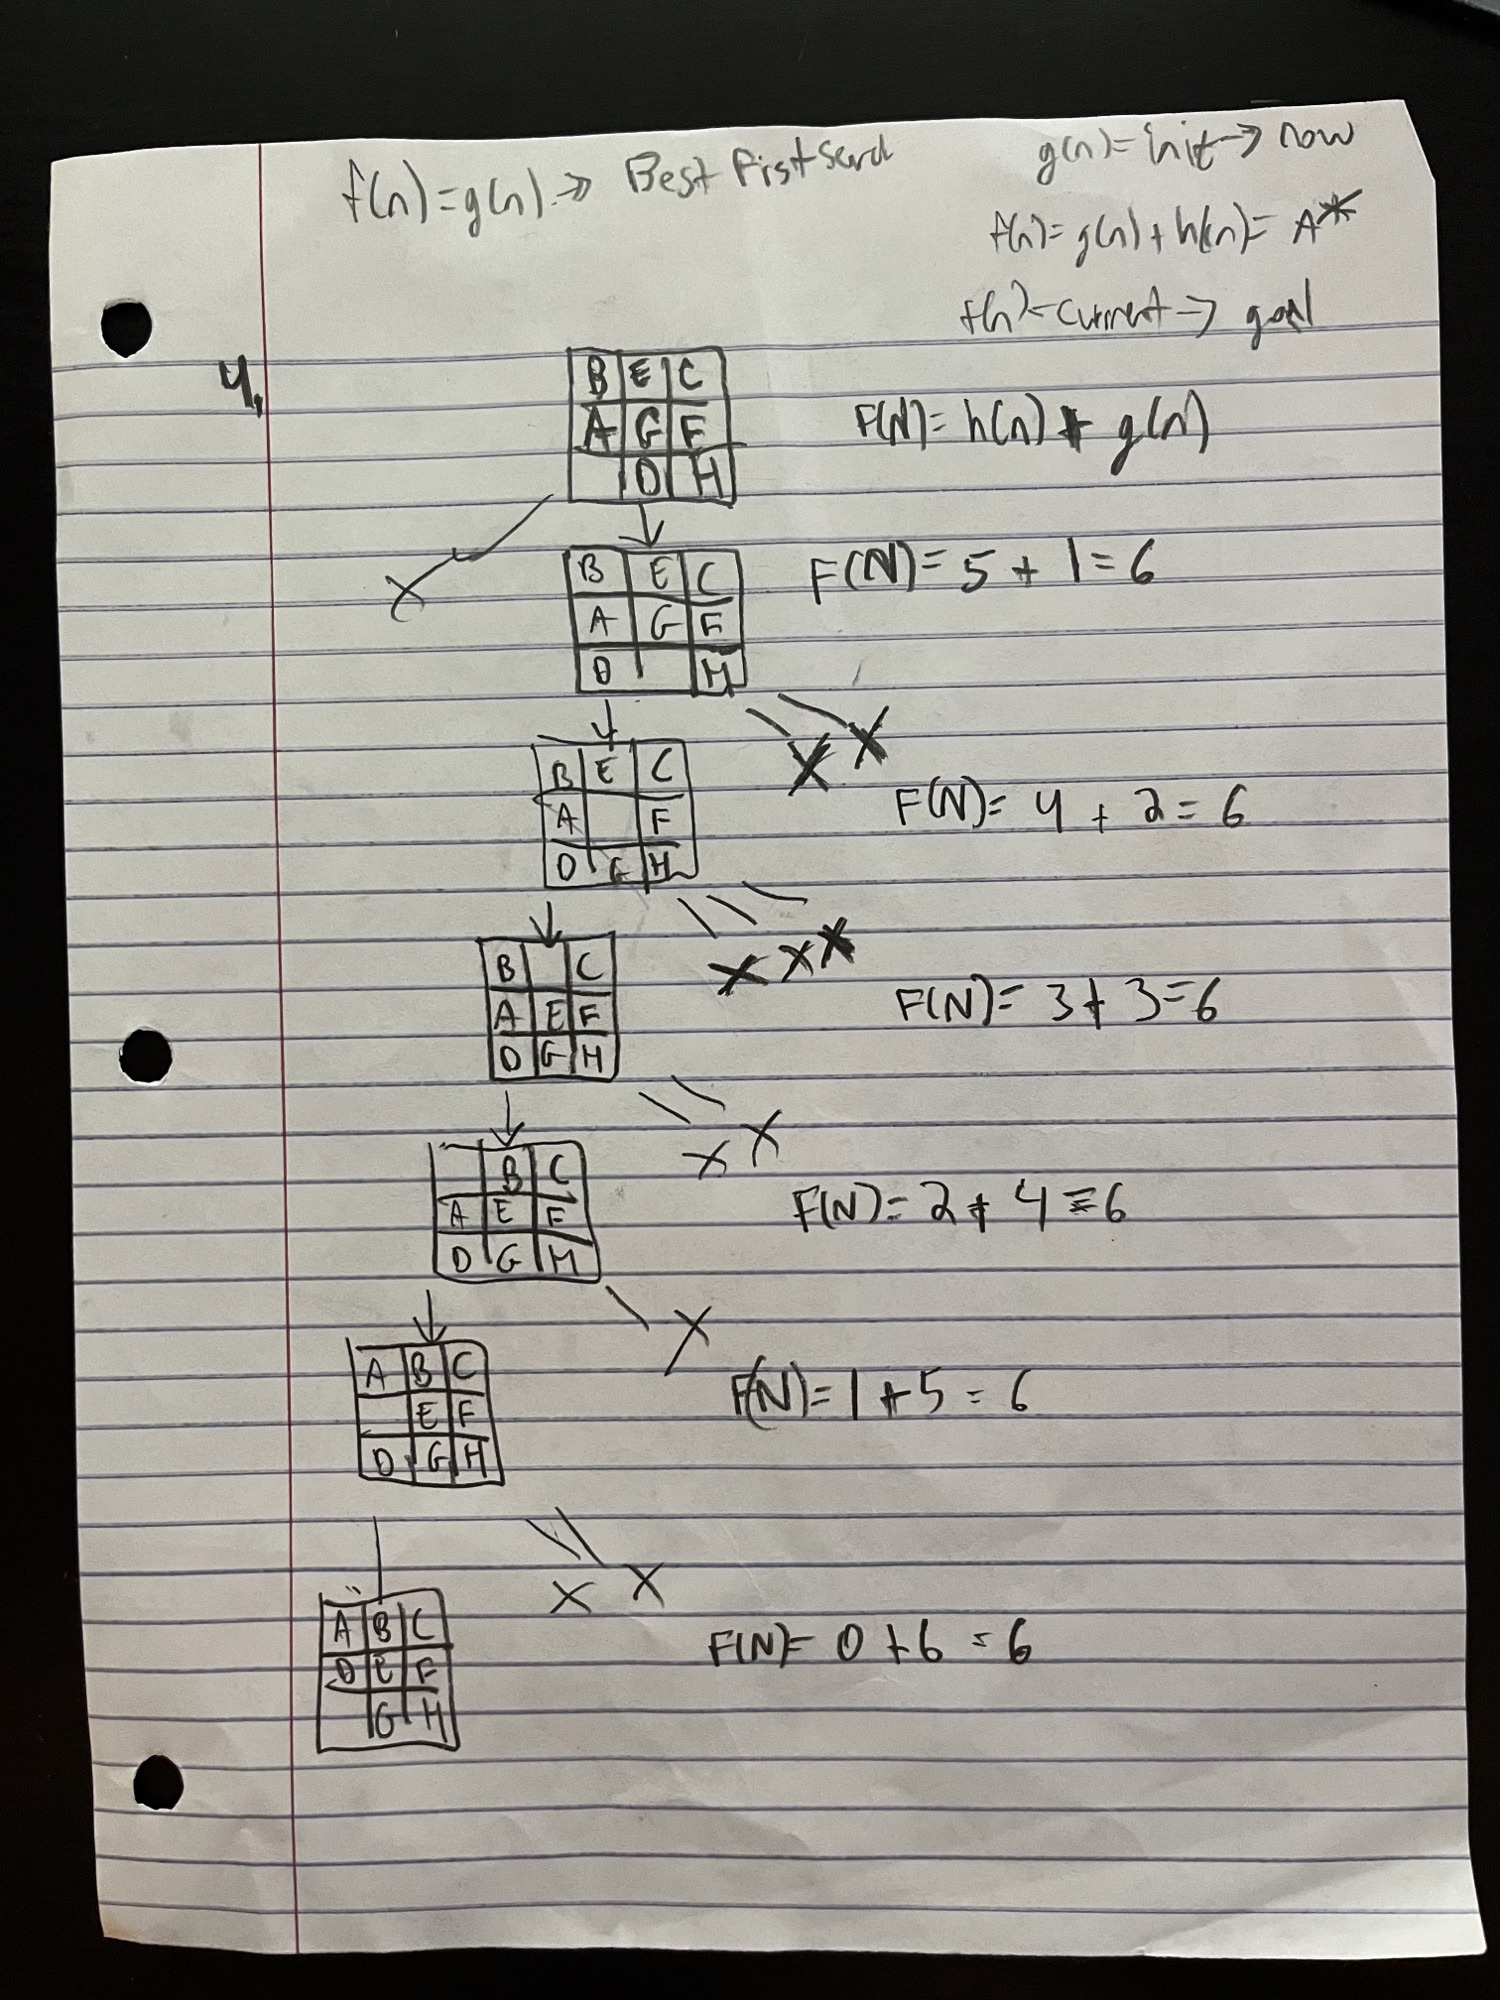 f(n)=g(n) ->> Best First
g(n)= init -> now
f(n)=g(n)+h(n)= A*
f(n)=current -> goal
4.
B E C
A G F
D H
F(N)= h(n) + g(n)
B E C
A G F
D H
F(N)= 5 + 1 = 6
X
X X
B E C
A F
D G H
F(N)= 4 + 2 = 6
X X X
B C
A E F
D G H
F(N)= 3 + 3 = 6
X X
B C
A E F
D G H
F(N)= 2 + 4 = 6
X
A B C
E F
D G H
F(N)= 1 + 5 = 6
X X
A B C
D E F
G H
F(N)= 0 + 6 = 6